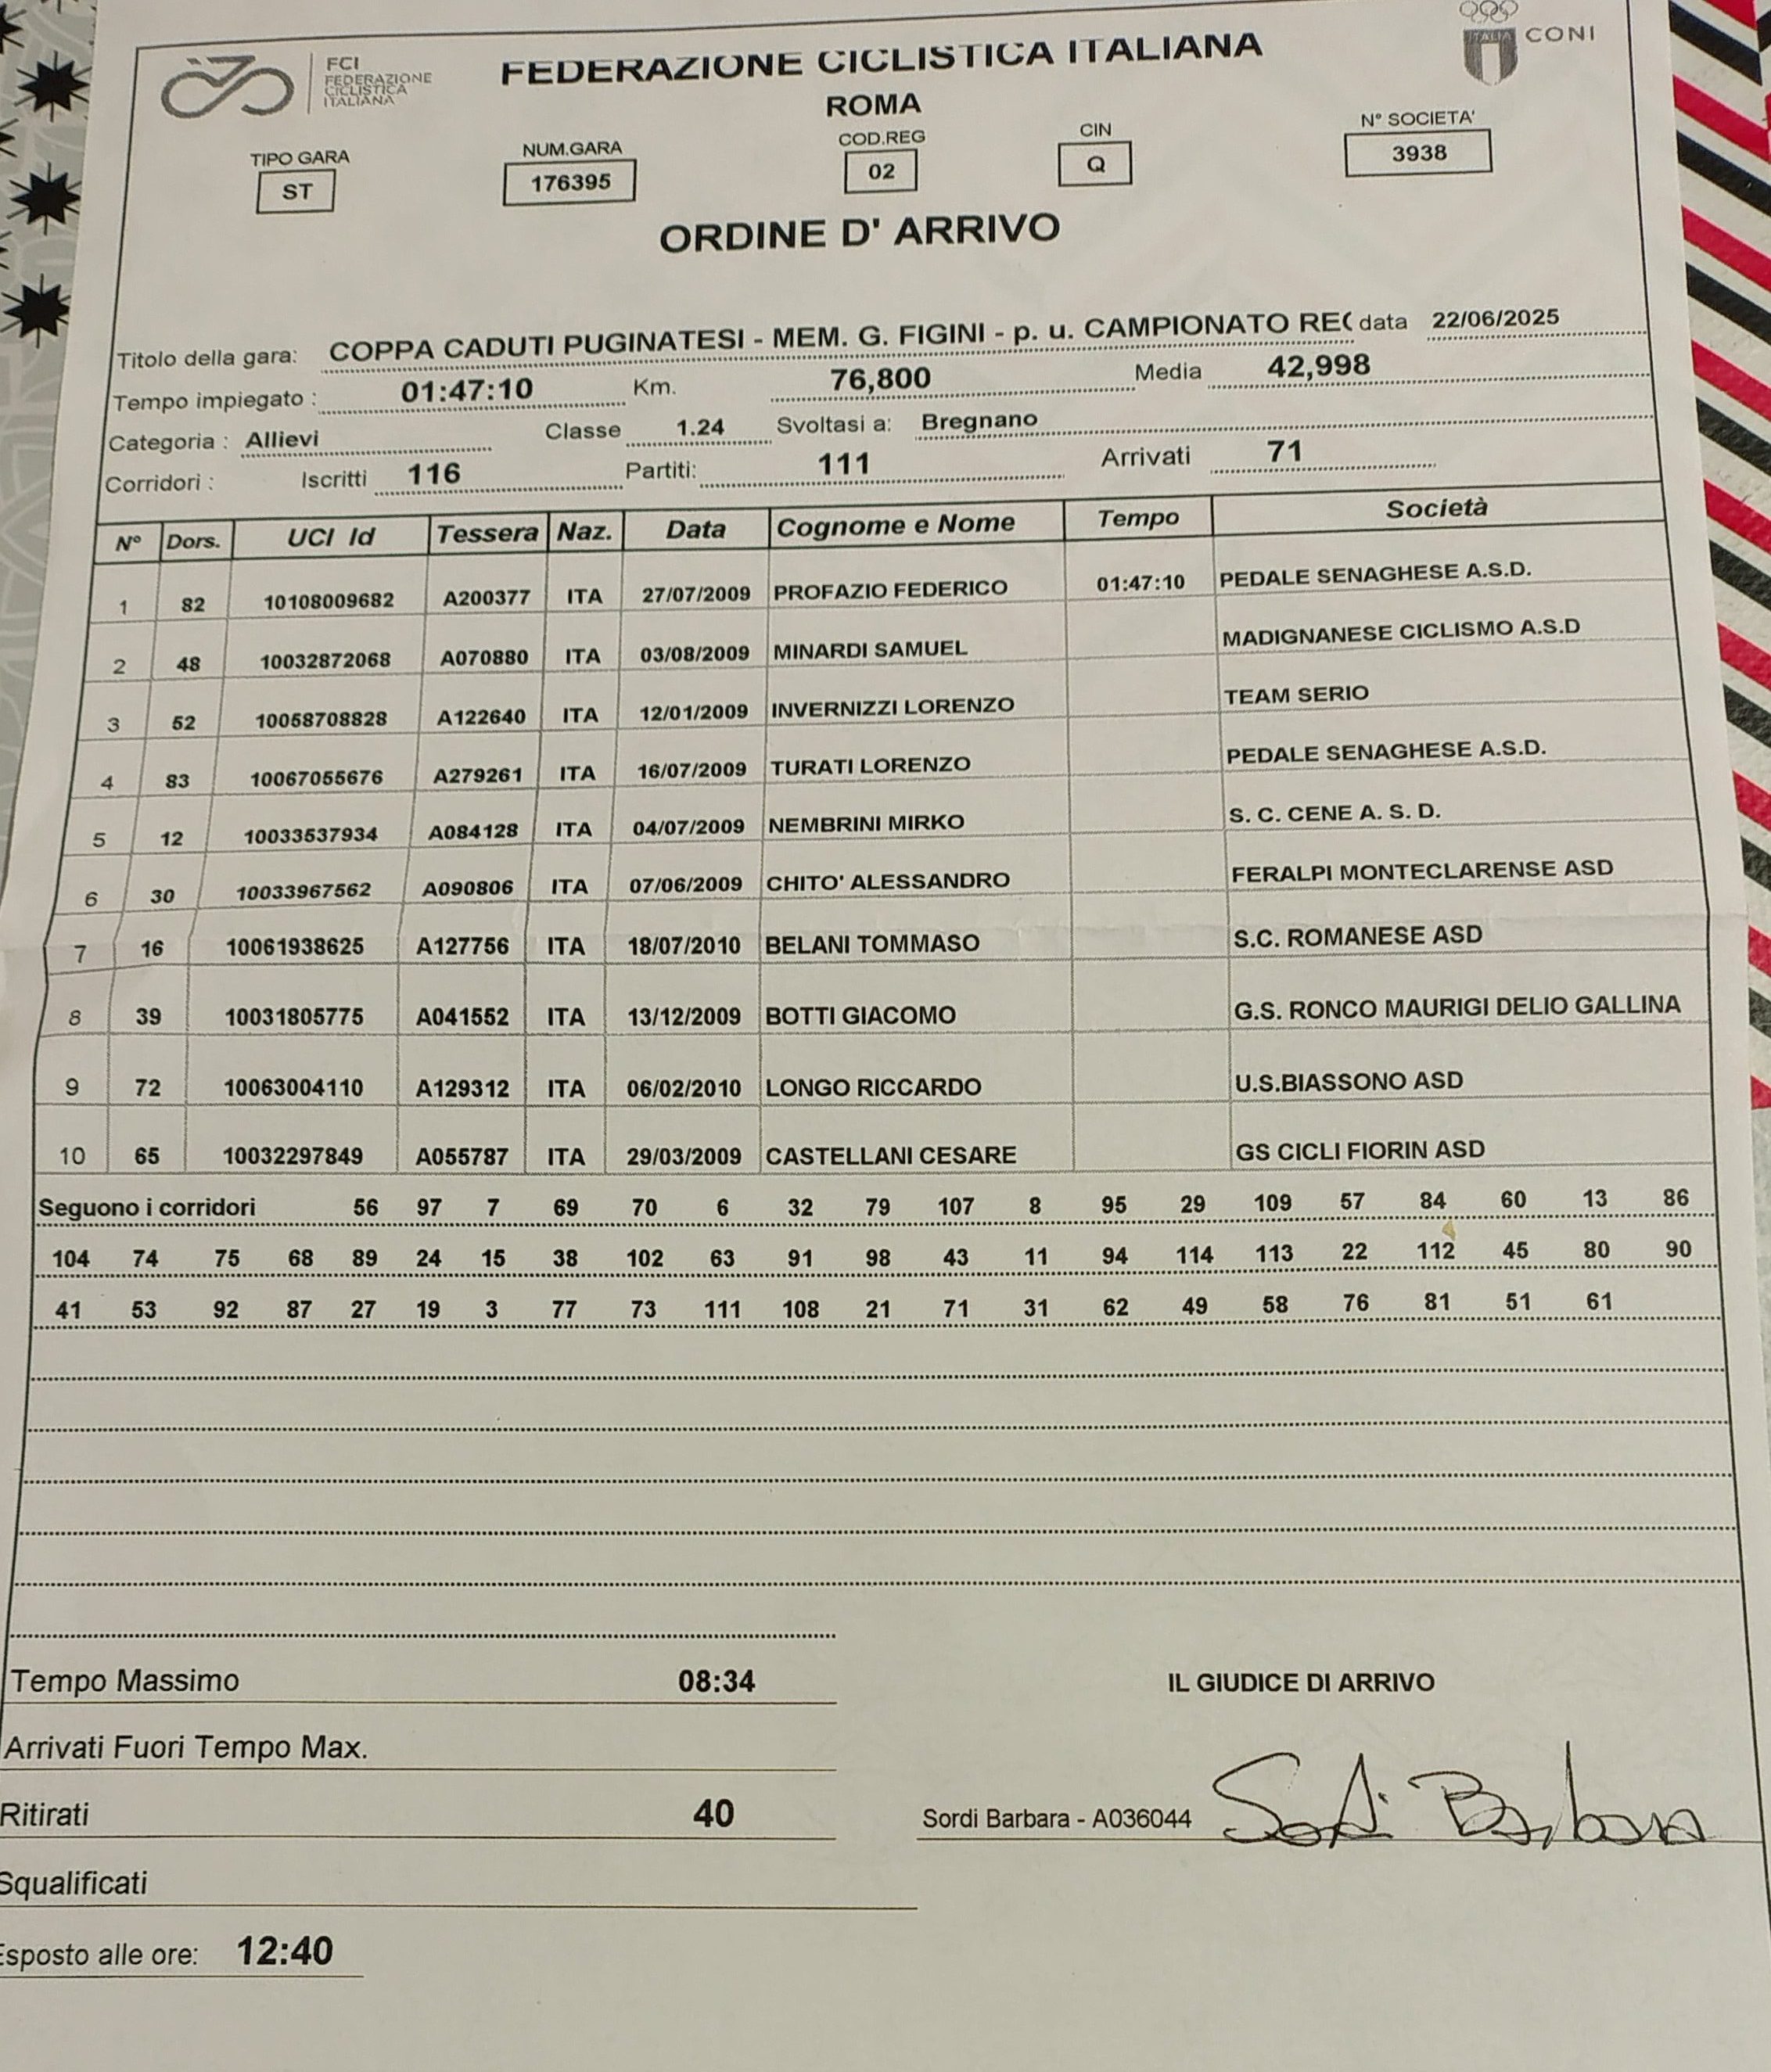 FCI
FEDERAZIONE
CICLISTICA
ITALIANA
FEDERAZIONE CICLISTICA ITALIANA
ROMA
ITALIA
CONI
TIPO GARA NUM.GARA COD.REG CIN N° SOCIETA'
ST 176395 02 Q 3938
ORDINE D' ARRIVO
Titolo della gara: COPPA CADUTI PUGINATESI - MEM. G. FIGINI - p. u. CAMPIONATO REG data 22/06/2025
Tempo impiegato : 01:47:10 Km. 76,800 Media 42,998
Categoria : Allievi Classe 1.24 Svoltasi a: Bregnano
Corridori : Iscritti 116 Partiti: 111 Arrivati 71
N° Dors. UCI Id Tessera Naz. Data Cognome e Nome Tempo Società
1 82 10108009682 A200377 ITA 27/07/2009 PROFAZIO FEDERICO 01:47:10 PEDALE SENAGHESE A.S.D.
2 48 10032872068 A070880 ITA 03/08/2009 MINARDI SAMUEL MADIGNANESE CICLISMO A.S.D
3 52 10058708828 A122640 ITA 12/01/2009 INVERNIZZI LORENZO TEAM SERIO
4 83 10067055676 A279261 ITA 16/07/2009 TURATI LORENZO PEDALE SENAGHESE A.S.D.
5 12 10033537934 A084128 ITA 04/07/2009 NEMBRINI MIRKO S. C. CENE A. S. D.
6 30 10033967562 A090806 ITA 07/06/2009 CHITO' ALESSANDRO FERALPI MONTECLARENSE ASD
7 16 10061938625 A127756 ITA 18/07/2010 BELANI TOMMASO S.C. ROMANESE ASD
8 39 10031805775 A041552 ITA 13/12/2009 BOTTI GIACOMO G.S. RONCO MAURIGI DELIO GALLINA
9 72 10063004110 A129312 ITA 06/02/2010 LONGO RICCARDO U.S.BIASSONO ASD
10 65 10032297849 A055787 ITA 29/03/2009 CASTELLANI CESARE GS CICLI FIORIN ASD
Seguono i corridori 56 97 7 69 70 6 32 79 107 8 95 29 109 57 84 60 13 86
104 74 75 68 89 24 15 38 102 63 91 98 43 11 94 114 113 22 112 45 80 90
41 53 92 87 27 19 3 77 73 111 108 21 71 31 62 49 58 76 81 51 61
Tempo Massimo 08:34
IL GIUDICE DI ARRIVO
Arrivati Fuori Tempo Max.
Ritirati 40
Sordi Barbara - A036044 Sordi Barbara
Squalificati
Esposto alle ore: 12:40